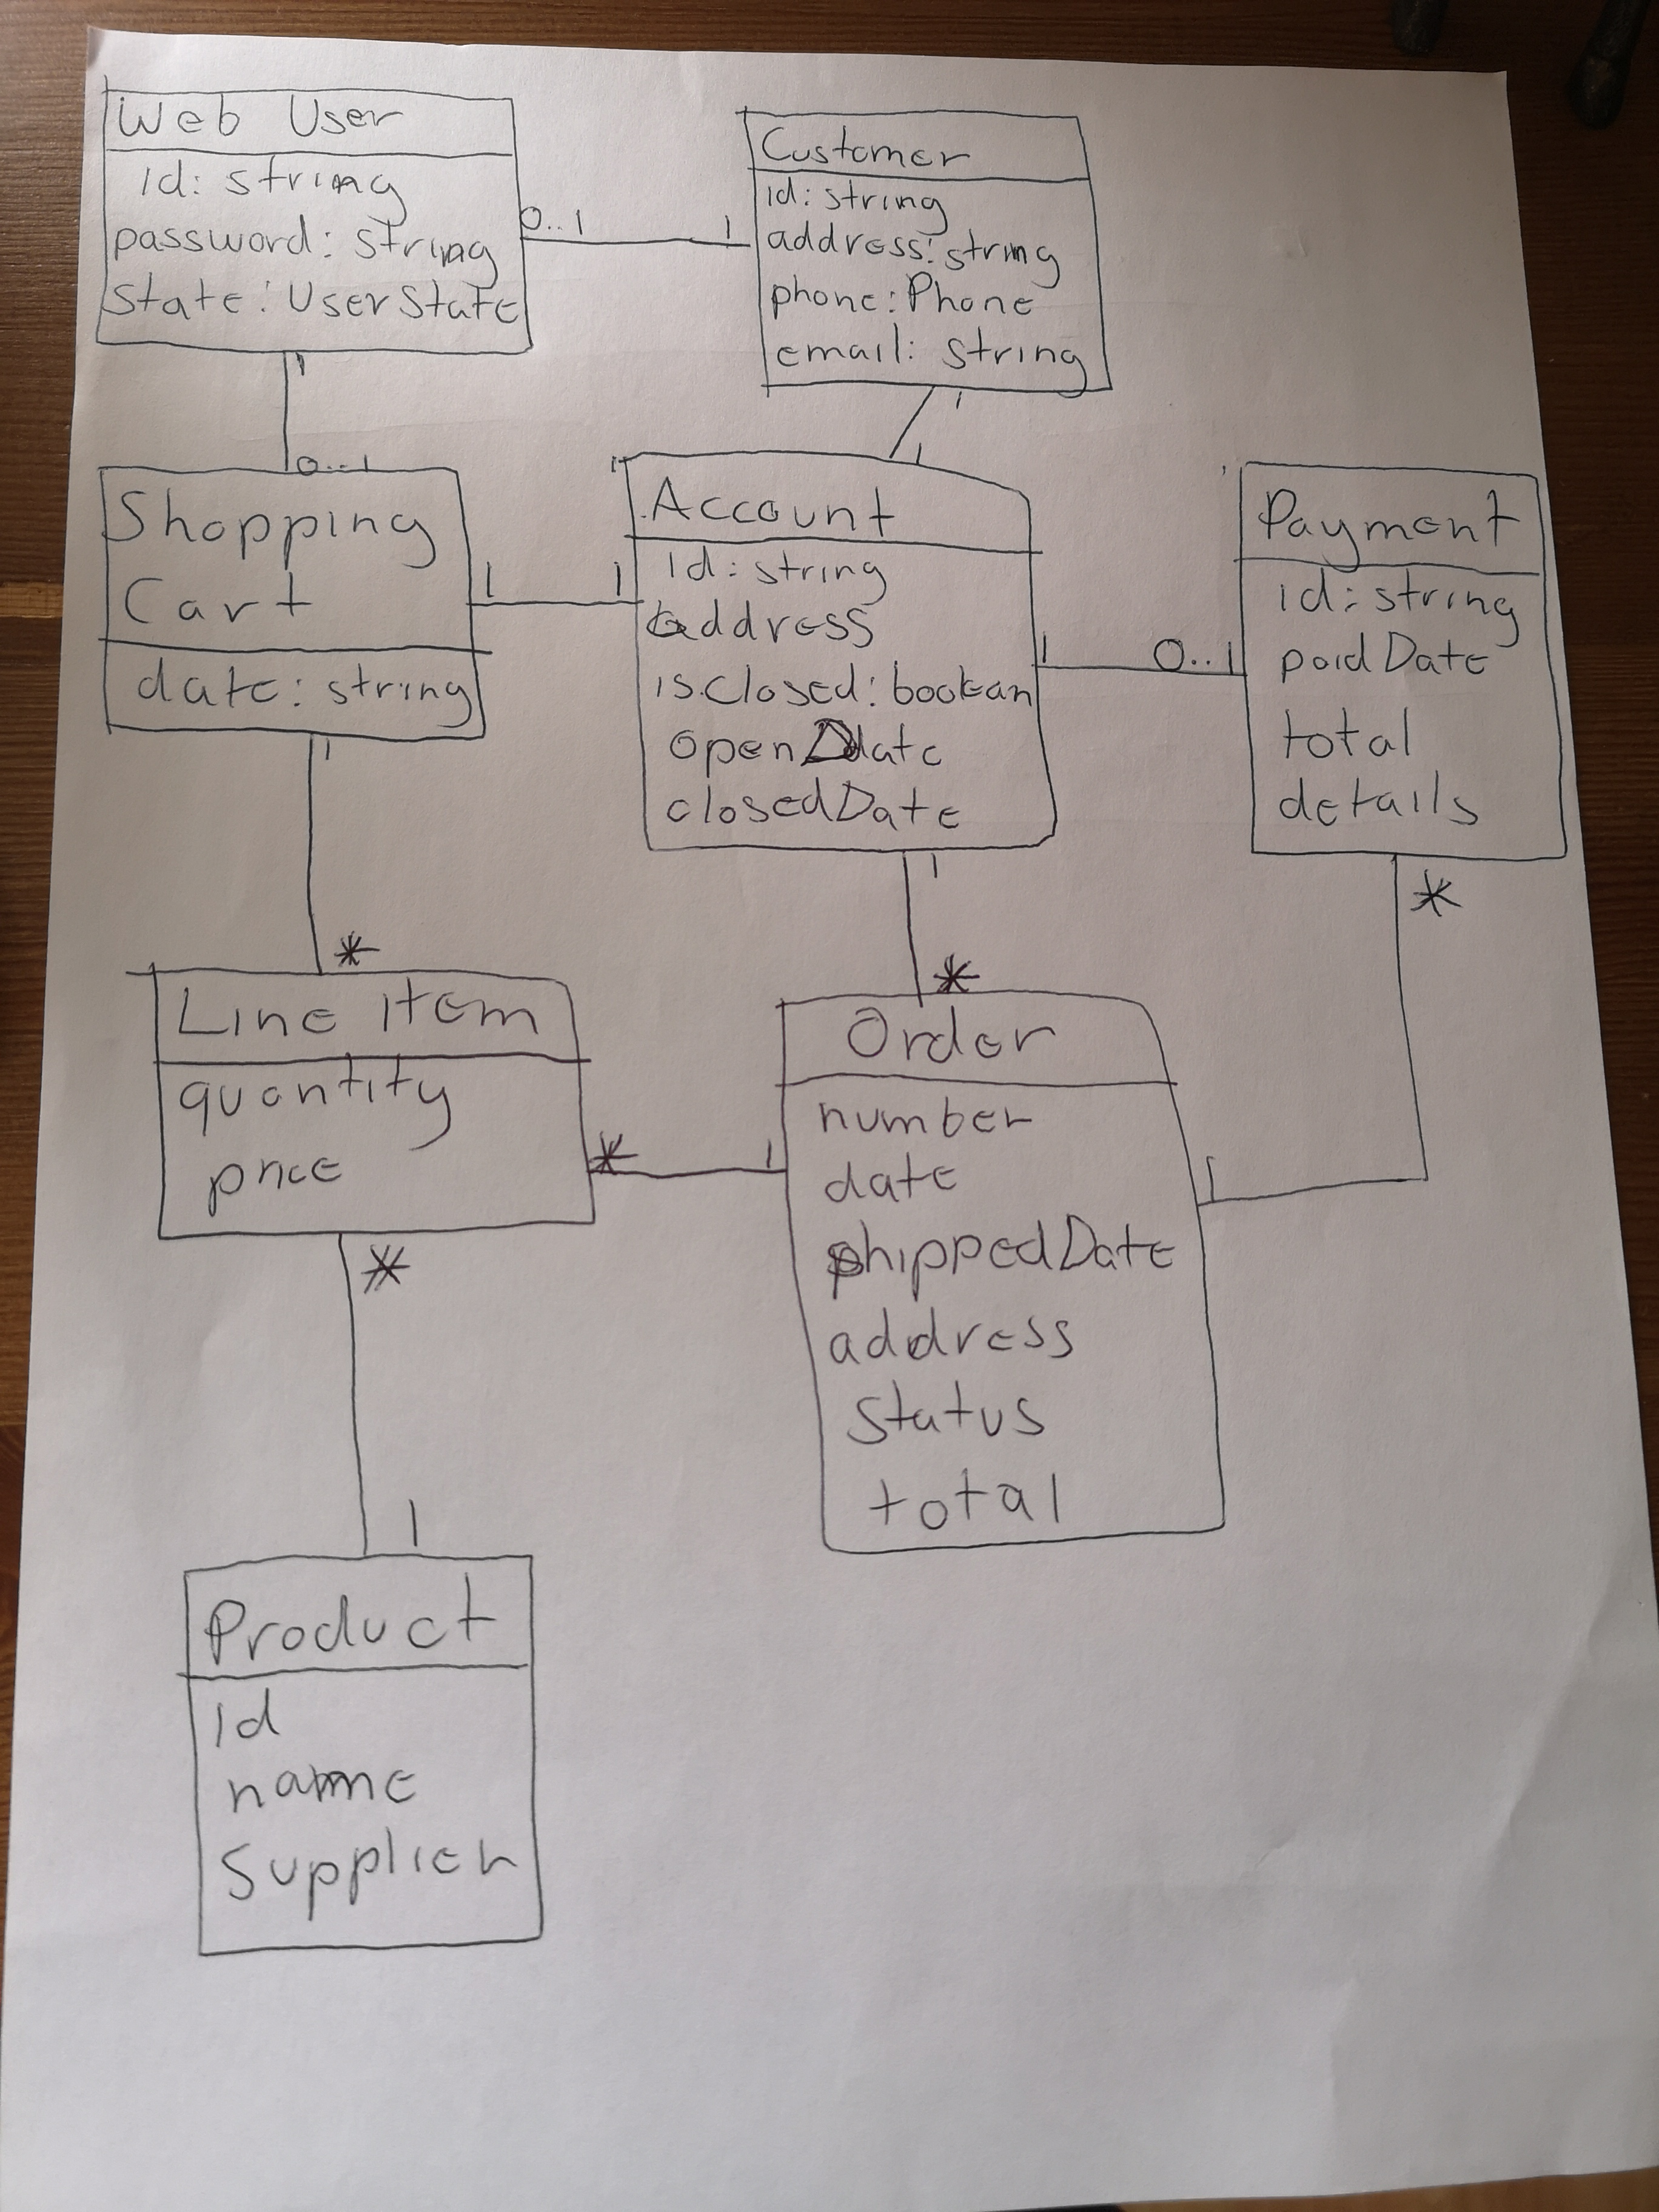 Web User
id: string
password: string
state: UserState
0..1
1
Customer
id: string
address: string
phone: Phone
email: string
1
0..1
1
1
Shopping
Cart
date: string
1
1
Account
id: string
address
isClosed: boolean
openDate
closedDate
1
0..1
Payment
id: string
paidDate
total
details
1
*
1
*
*
Line Item
quantity
price
*
1
Order
number
date
shippedDate
address
status
total
1
*
1
Product
id
name
Supplier